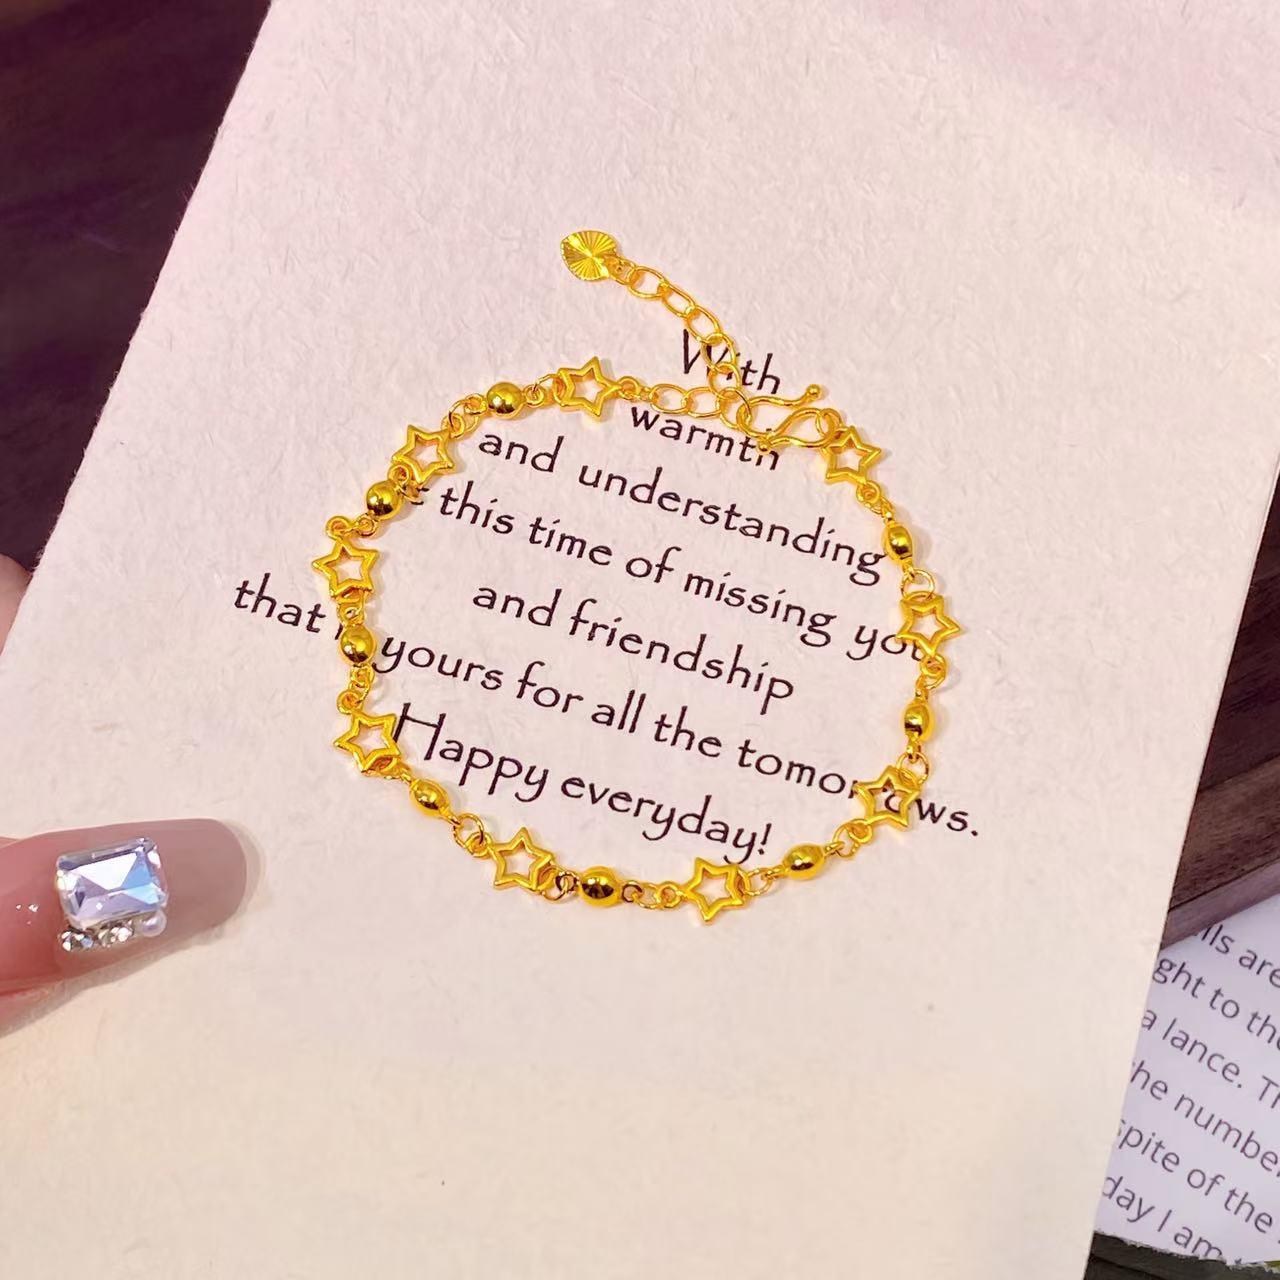 With
warmth
and understanding
this time of missing you
and friendship
that yours for all the tomorrows.
Happy everyday!
are
ght to the
a lance.
he number
spite of the
day I am